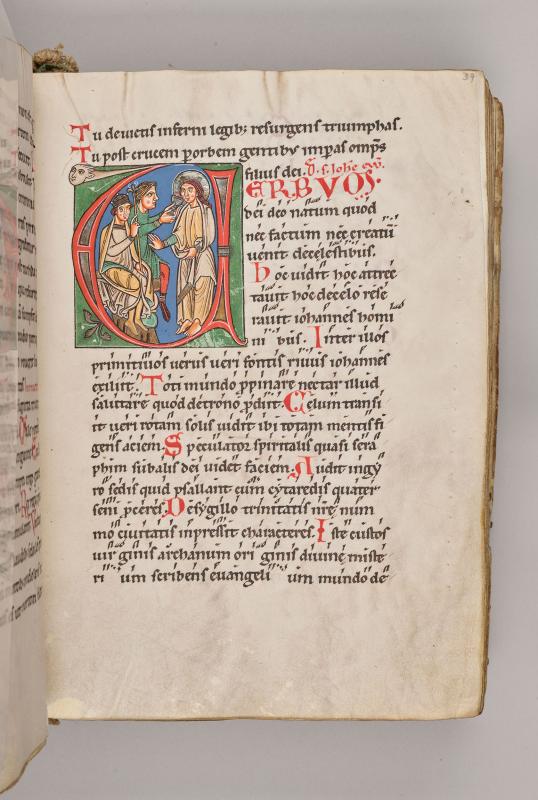 39
Tu devictis inferni legib; resurgens triumphas.
Tu post crucem porbem gentibus imperas omps
filius dei. D. s. Iohe ew.
VERBVO S.
dei deo natum quod
nec factum nec creatū
venit decelestibus.
Hoc vidit hoc attrec
tavit hoc decelo rese
ravit iohannes homi
ni bus. Inter illos
primitivos verus veri fontis rivus iohannes
exiliit. Toti mundo ppinare nectar illud
salutare quod detrono pdit. Celum transi
it veri rotam solis vidit ibi totam mentis fi
gens aciem. Speculator spiritalis quasi sera
phim subalis dei videt faciem. Audit ingy
ro sedis quid psallant cum cytaredis quater
seni pceres. De sygillo trinitatis nre num
mo civitatis inpressit characteres. Iste custos
vir ginis archanum ori ginis divine miste
ri um scribens evangeli um mundo de